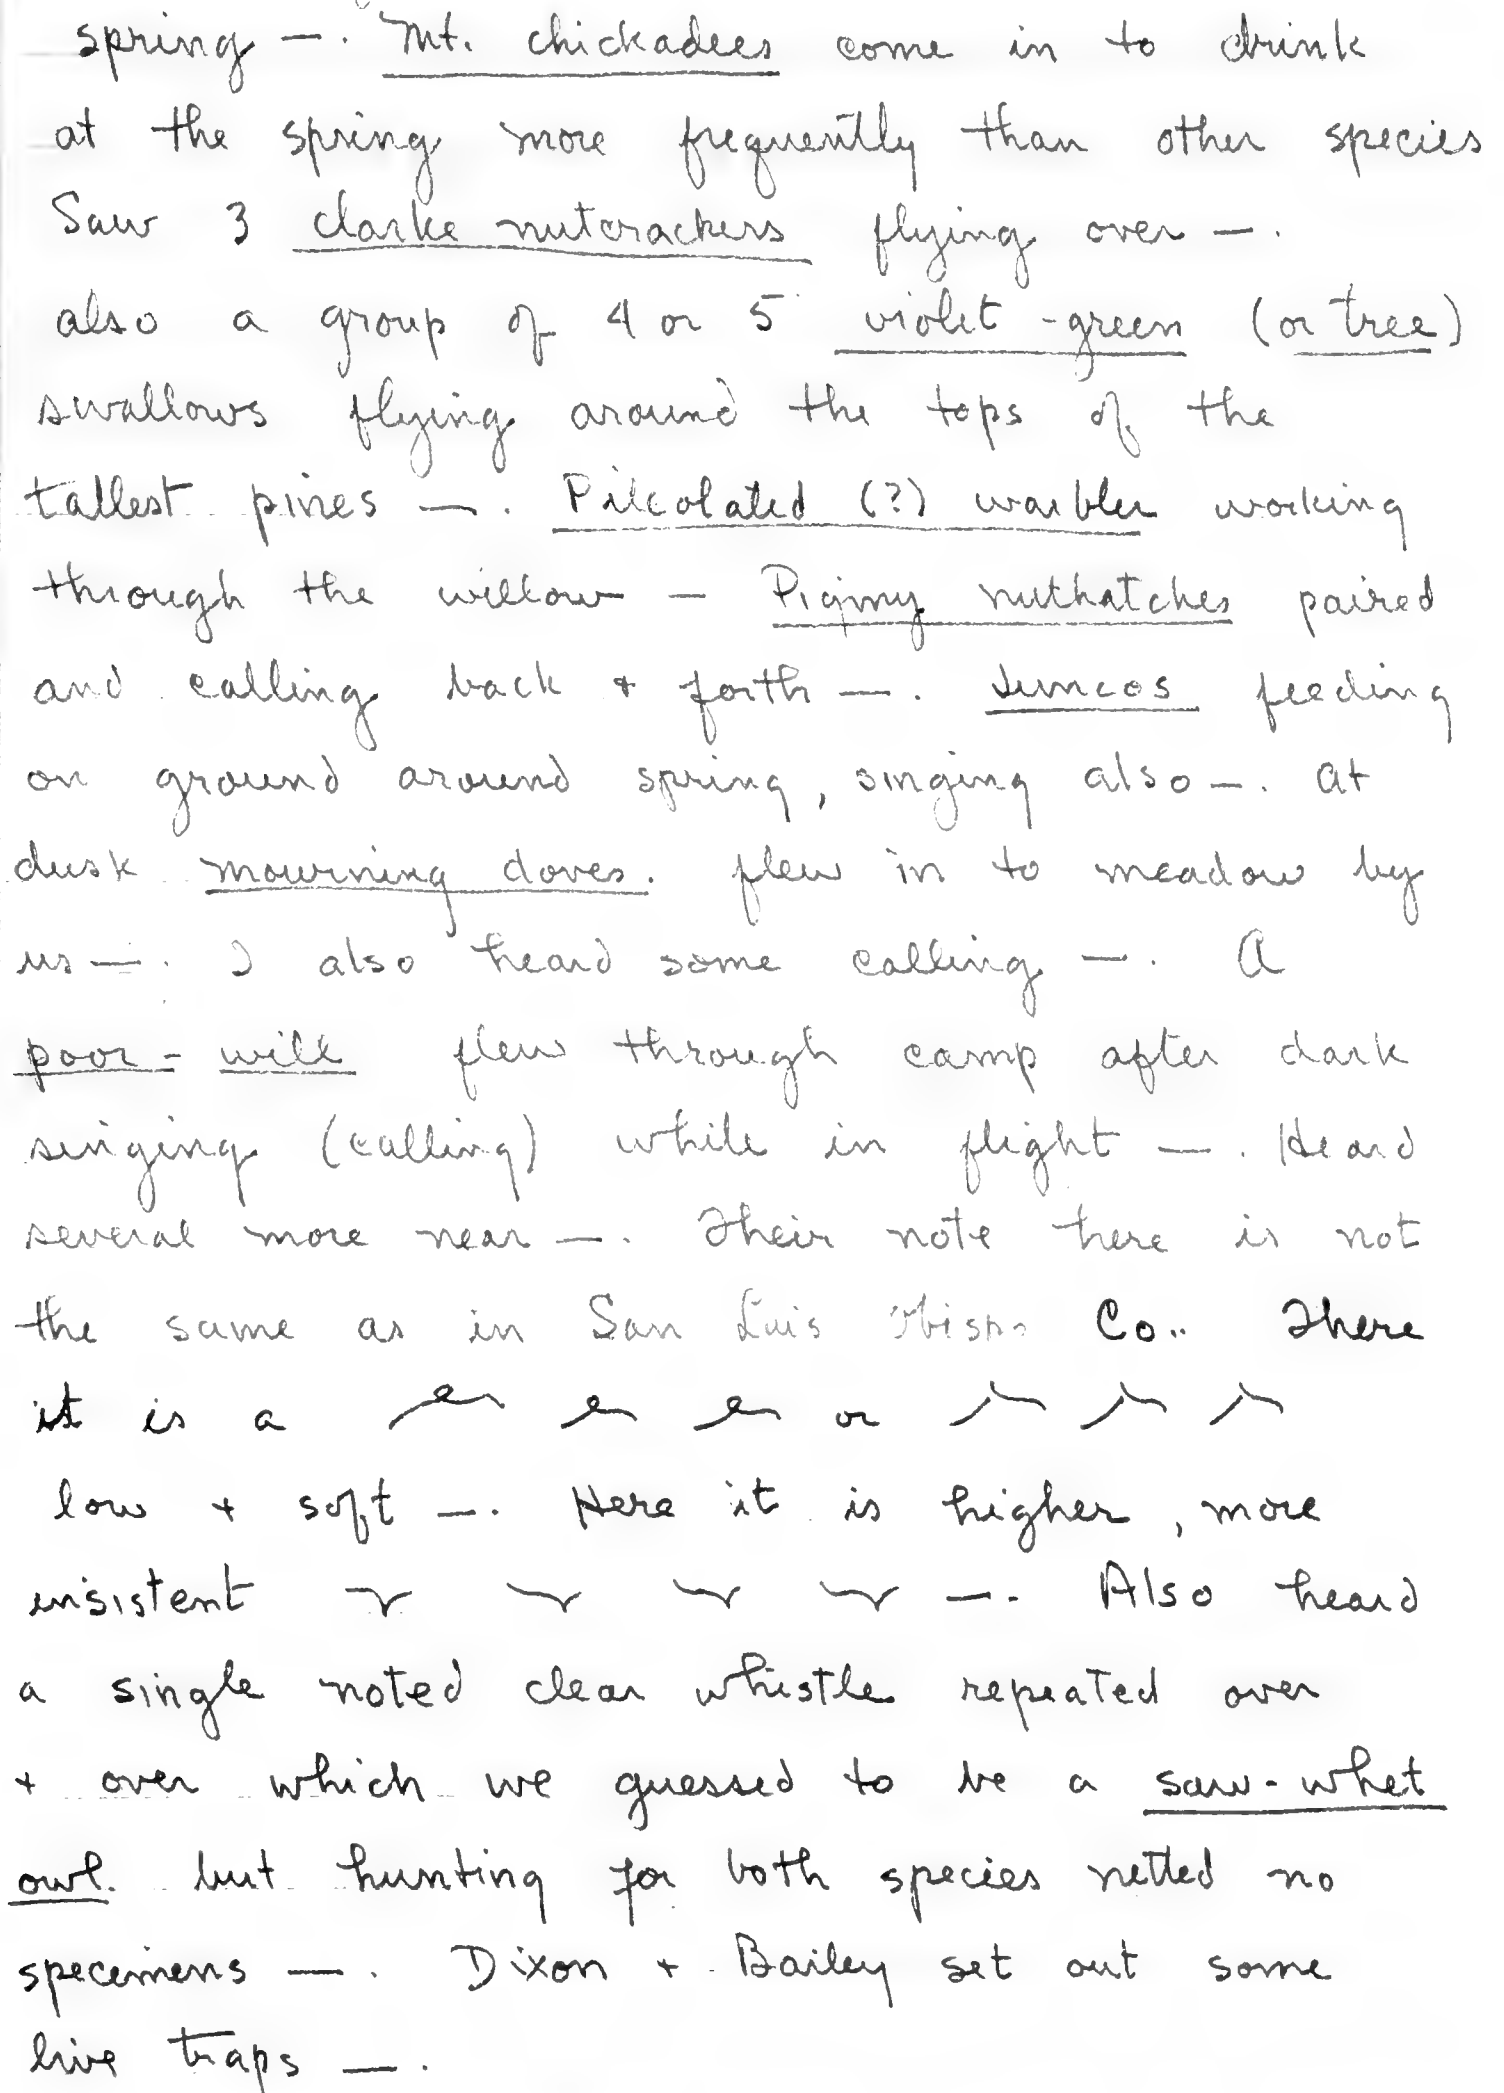 spring —. Mt. chickadees come in to drink
at the spring more frequently than other species
Saw 3 clarke nutcrackers flying over —.
also a group of 4 or 5 violet-green (or tree)
swallows flying around the tops of the
tallest pines —. Pileolated (?) warbler working
through the willow — Pigmy nuthatches paired
and calling back + forth —. Juncos feeding
on ground around spring, singing also —. At
dusk mourning doves. flew in to meadow by
us —. I also heard some calling —. A
poor-will flew through camp after dark
singing (calling) while in flight —. Heard
several more near —. Their note here is not
the same as in San Luis Obispo Co.. There
it is a or
low + soft —. Here it is higher, more
insistent —. Also heard
a single noted clear whistle repeated over
+ over which we guessed to be a saw-whet
owl. but hunting for both species netted no
specimens —. Dixon + Bailey set out some
live traps —.